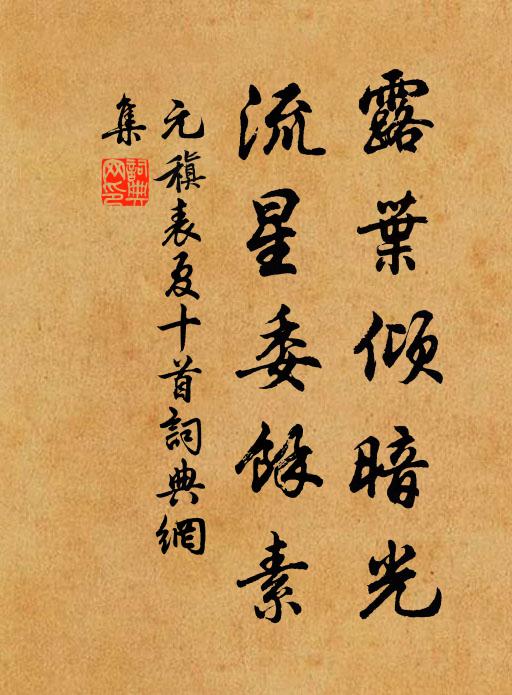 露葉傾暗光
流星委餘素
元稹表夏十首詞典網
集
詞典網印